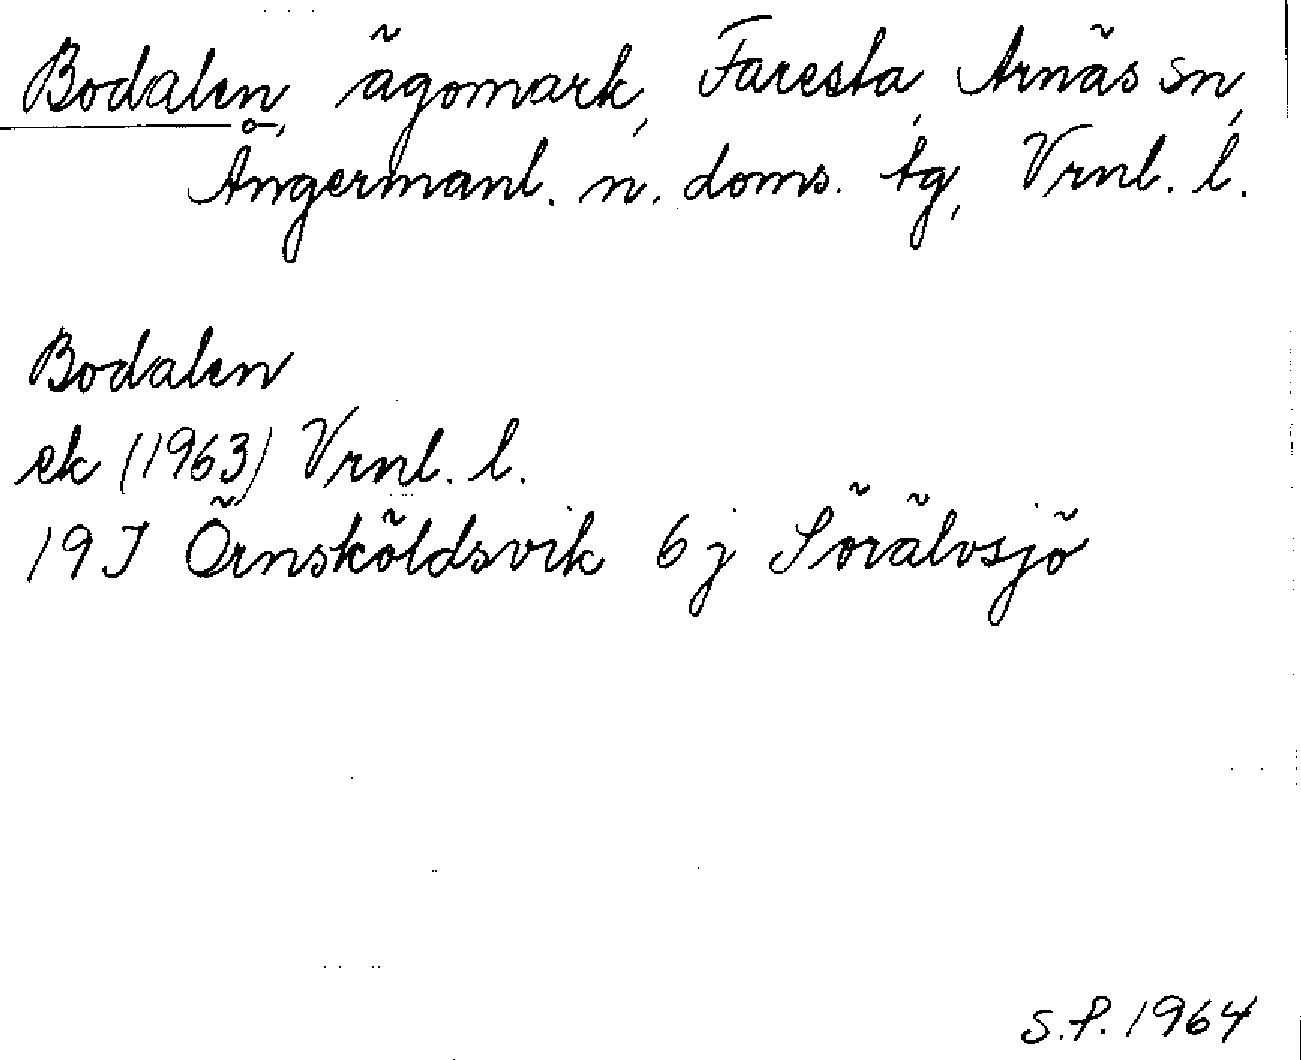 Bodalen, ägomark, Faresta, Arnäs sn,
Ångermanl. n. doms. tg, Vrnl. l.
Bodalen
ek (1963) Vrnl. l.
19J Örnsköldsvik 6j Sörälvsjö
S.P. 1964